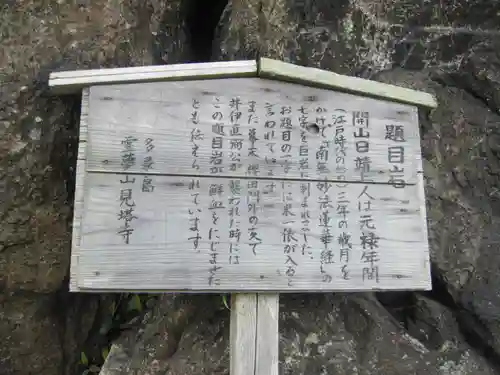 題目岩
開山日靖上人は元禄年間
(江戸時代の初め)三年の歳月を
かけて「南無妙法蓮華経」の
七字を巨岩に刻まれました。
お題目の一字に米一俵が入ると
言われています
また幕末桜田門外の変で
井伊直弼公が襲われた時には
この題目岩が鮮血をにじませた
とも伝えられています。
多景島
霊夢山見塔寺